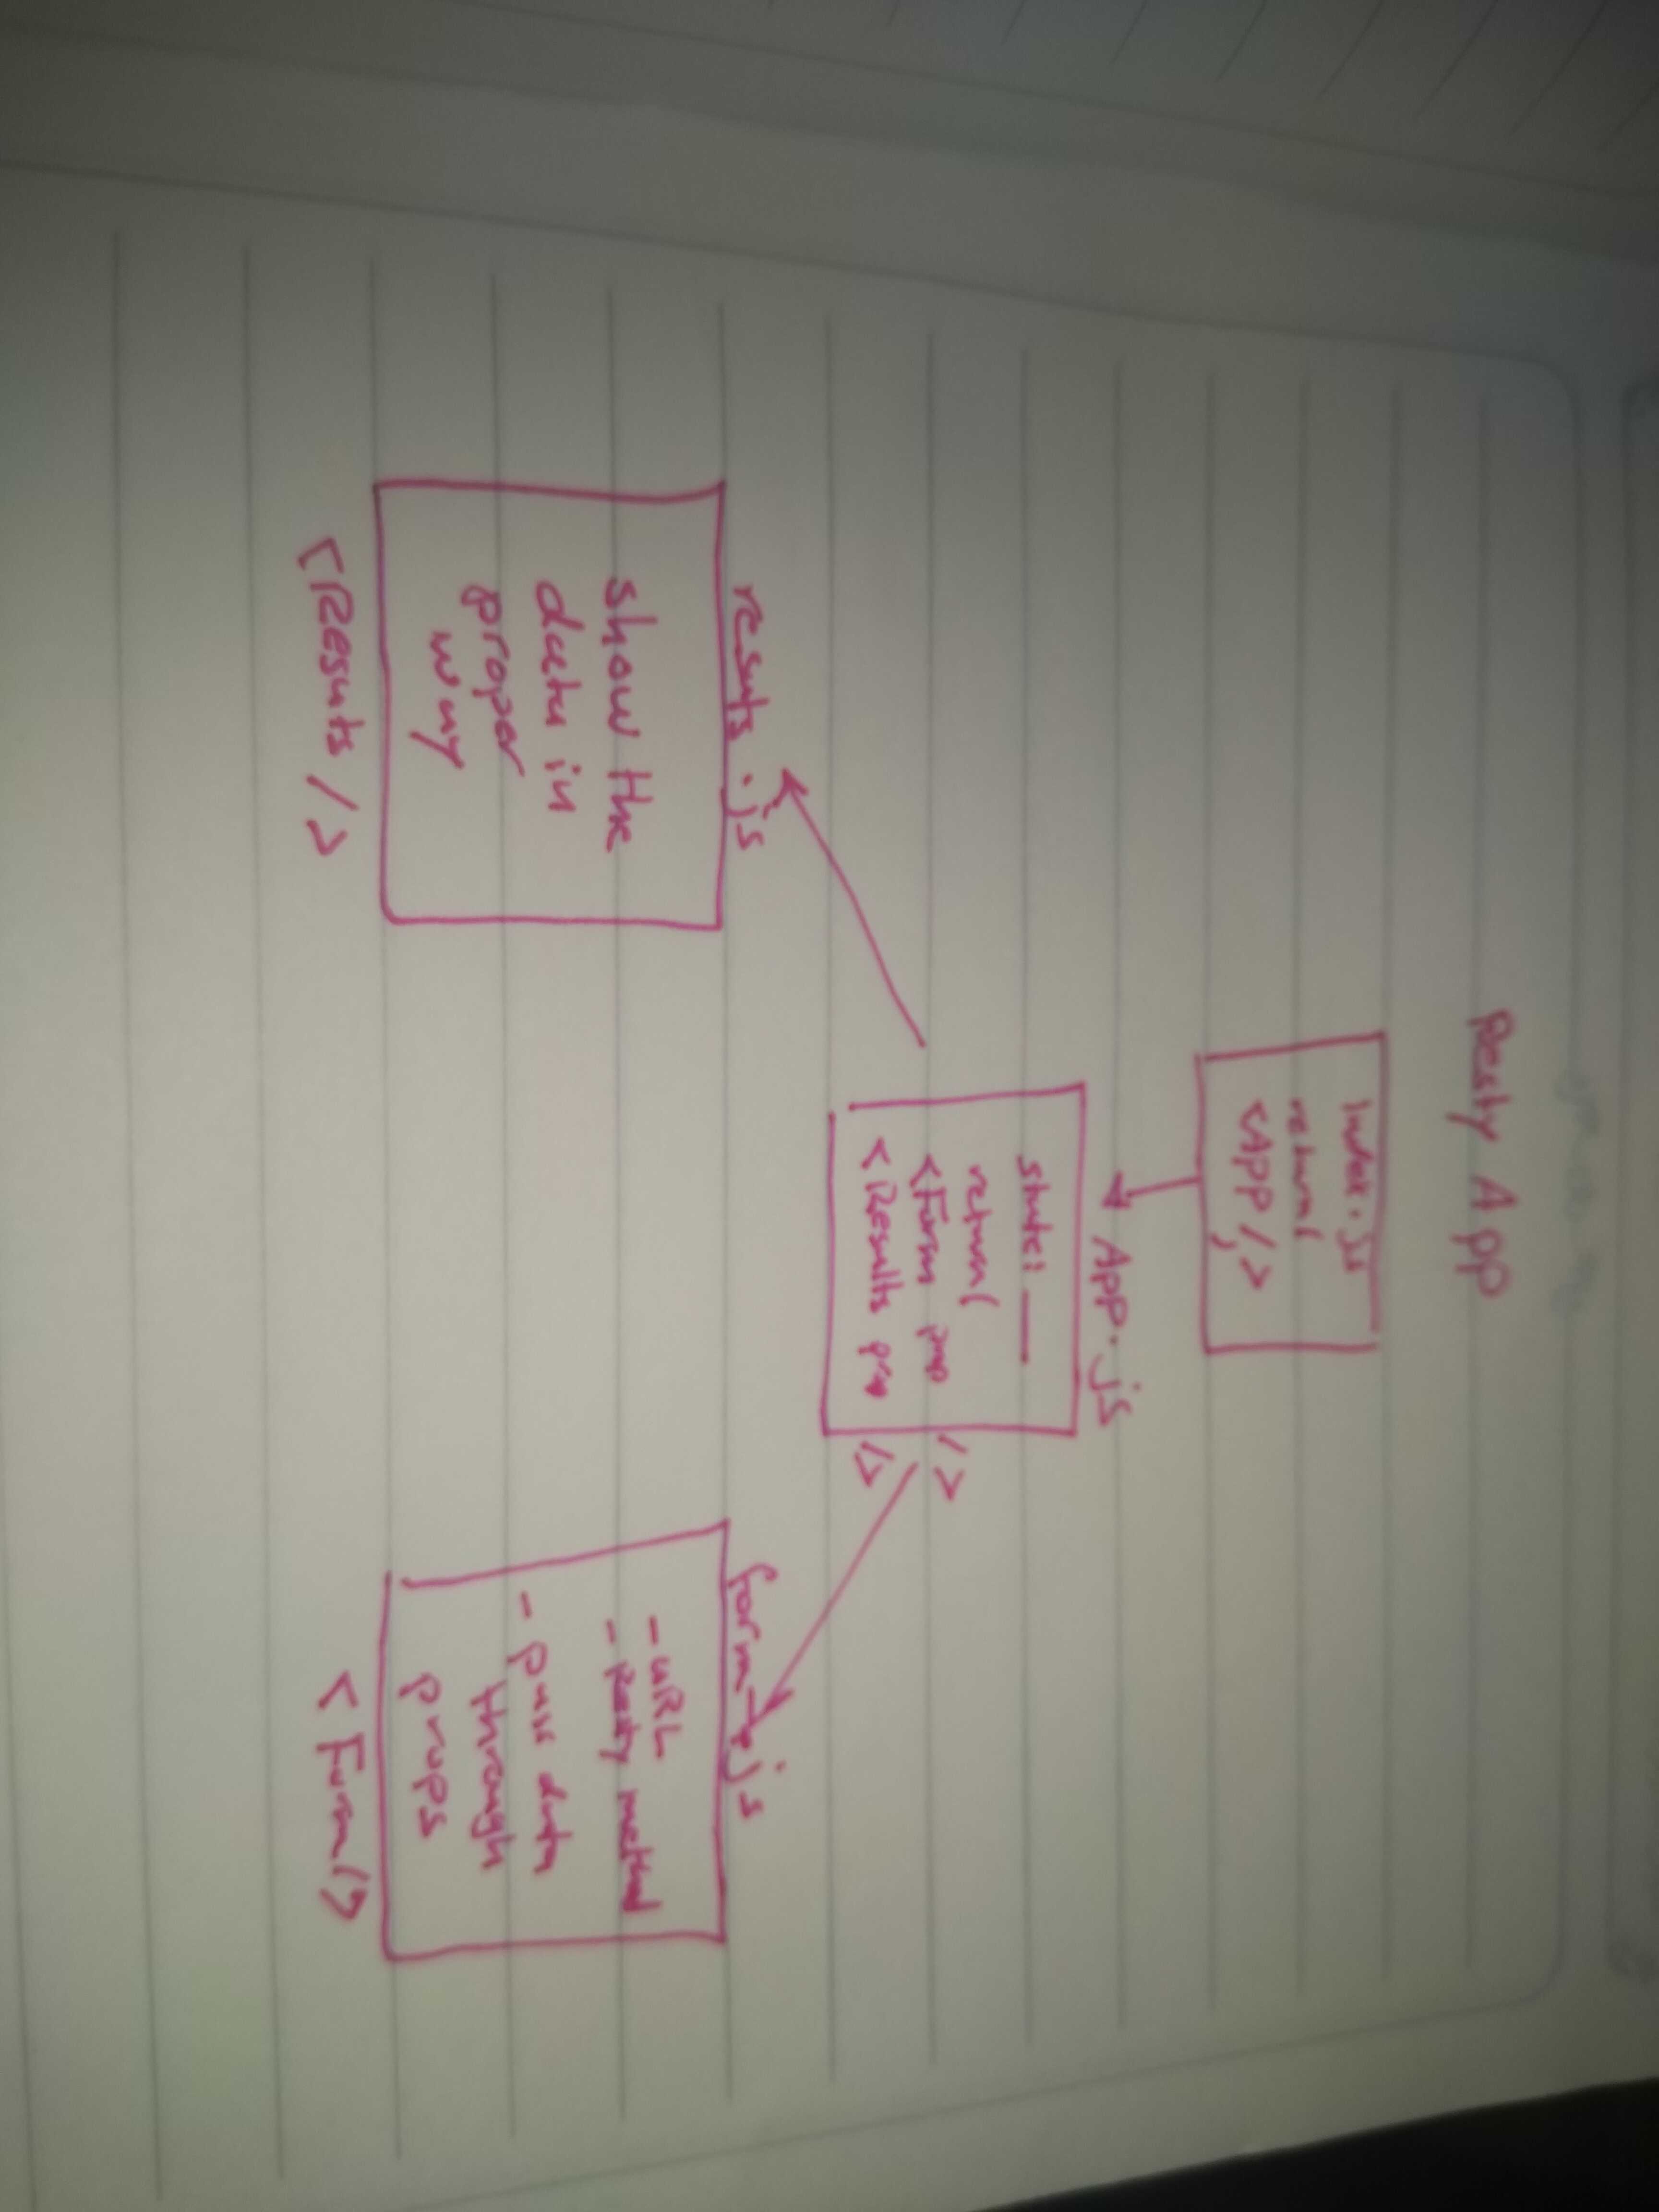 Resty App
index.js
return(
<App />
)
App.js
state: __
return(
<Form prop />
<Results prop />
resuts.js
show the
data in
proper
way
<Resuts />
form.js
- URL
- Resty method
- pass data
through
props
<Form/>